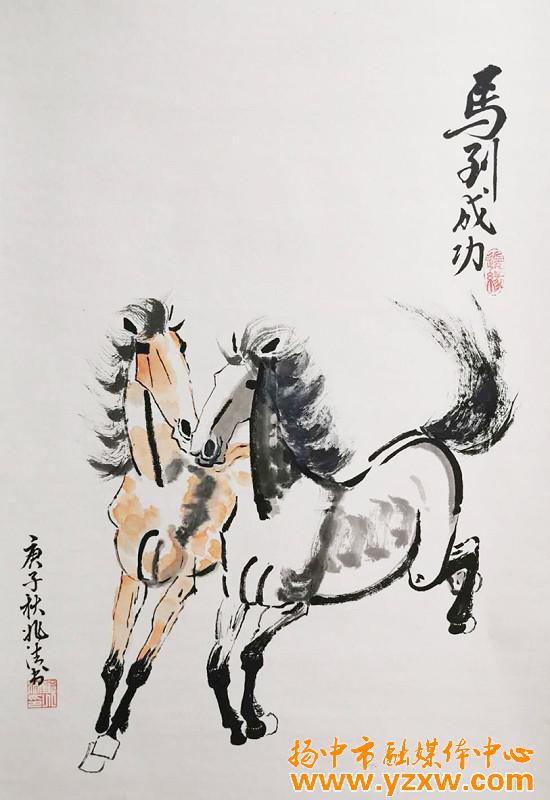 馬到成功
庚子秋兆洪書
扬中市融媒体中心
www.yzxw.com